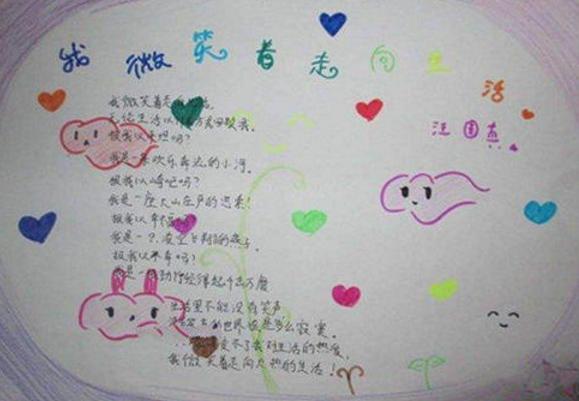 我微笑着走向生活
汪国真
我微笑着走
无论生活以方式回敬我。
报我以平坦吗?
我是一条欢乐奔流的小河。
报我以崎岖吗?
我是一座大山庄严的思索!
报我以幸福吗?
我是一?凌空飞翔的燕子。
报我以不幸吗?
我是一劲竹经得起千击万磨
生活里不能没有笑声
没有的世界该是多么寂寞。
变不了我对生活的热爱,
我微笑着走向火热的生活!